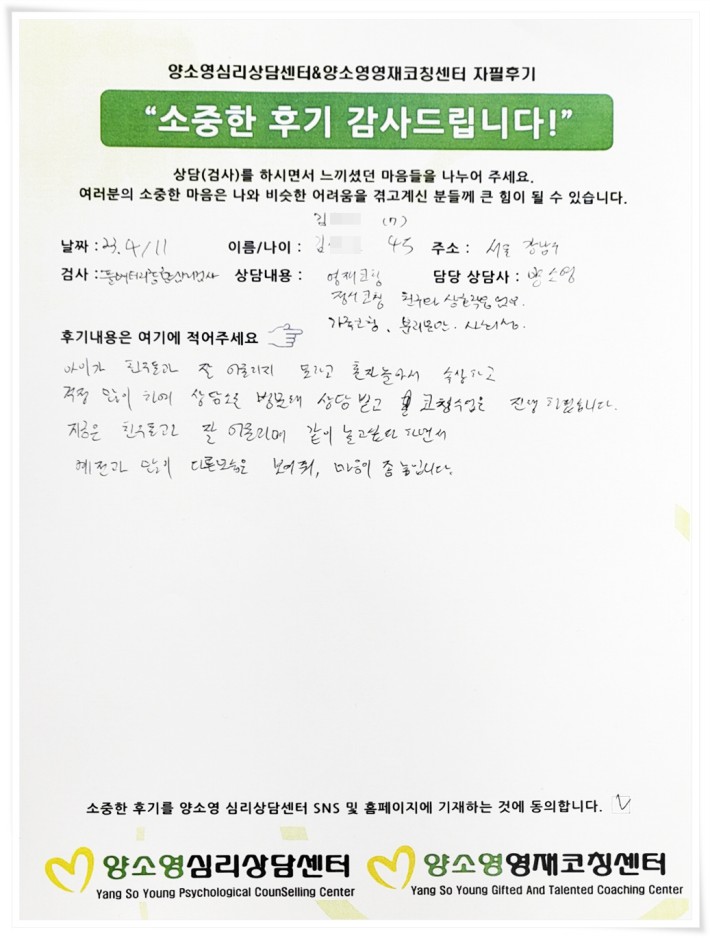 양소영심리상담센터&양소영영재코칭센터 자필후기
“소중한 후기 감사드립니다!”
상담(검사)를 하시면서 느끼셨던 마음들을 나누어 주세요.
여러분의 소중한 마음은 나와 비슷한 어려움을 겪고계신 분들께 큰 힘이 될 수 있습니다.
김 (7)
날짜 : 23. 4/11 이름/나이 : 김 45 주소 : 서울 강남구
검사 : 풀배터리종합심리검사 상담내용 : 영재코칭 담당 상담사 : 양소영
정서코칭 친구와 상호작용
가족코칭, 분리불안. 사회성.
후기내용은 여기에 적어주세요
아이가 친구들과 잘 어울리지 못하고 혼자놀아서 속상하고
걱정 많이 하여 상담소를 방문해 상담 받고 코칭수업을 진행 하였습니다.
지금은 친구들과 잘 어울리며 같이 놀고싶다 하면서
예전과 많이 다른모습을 보여줘, 마음이 좀 놓입니다.
소중한 후기를 양소영 심리상담센터 SNS 및 홈페이지에 기재하는 것에 동의합니다. ✓
양소영심리상담센터 양소영영재코칭센터
Yang So Young Psychological CounSelling Center Yang So Young Gifted And Talented Coaching Center